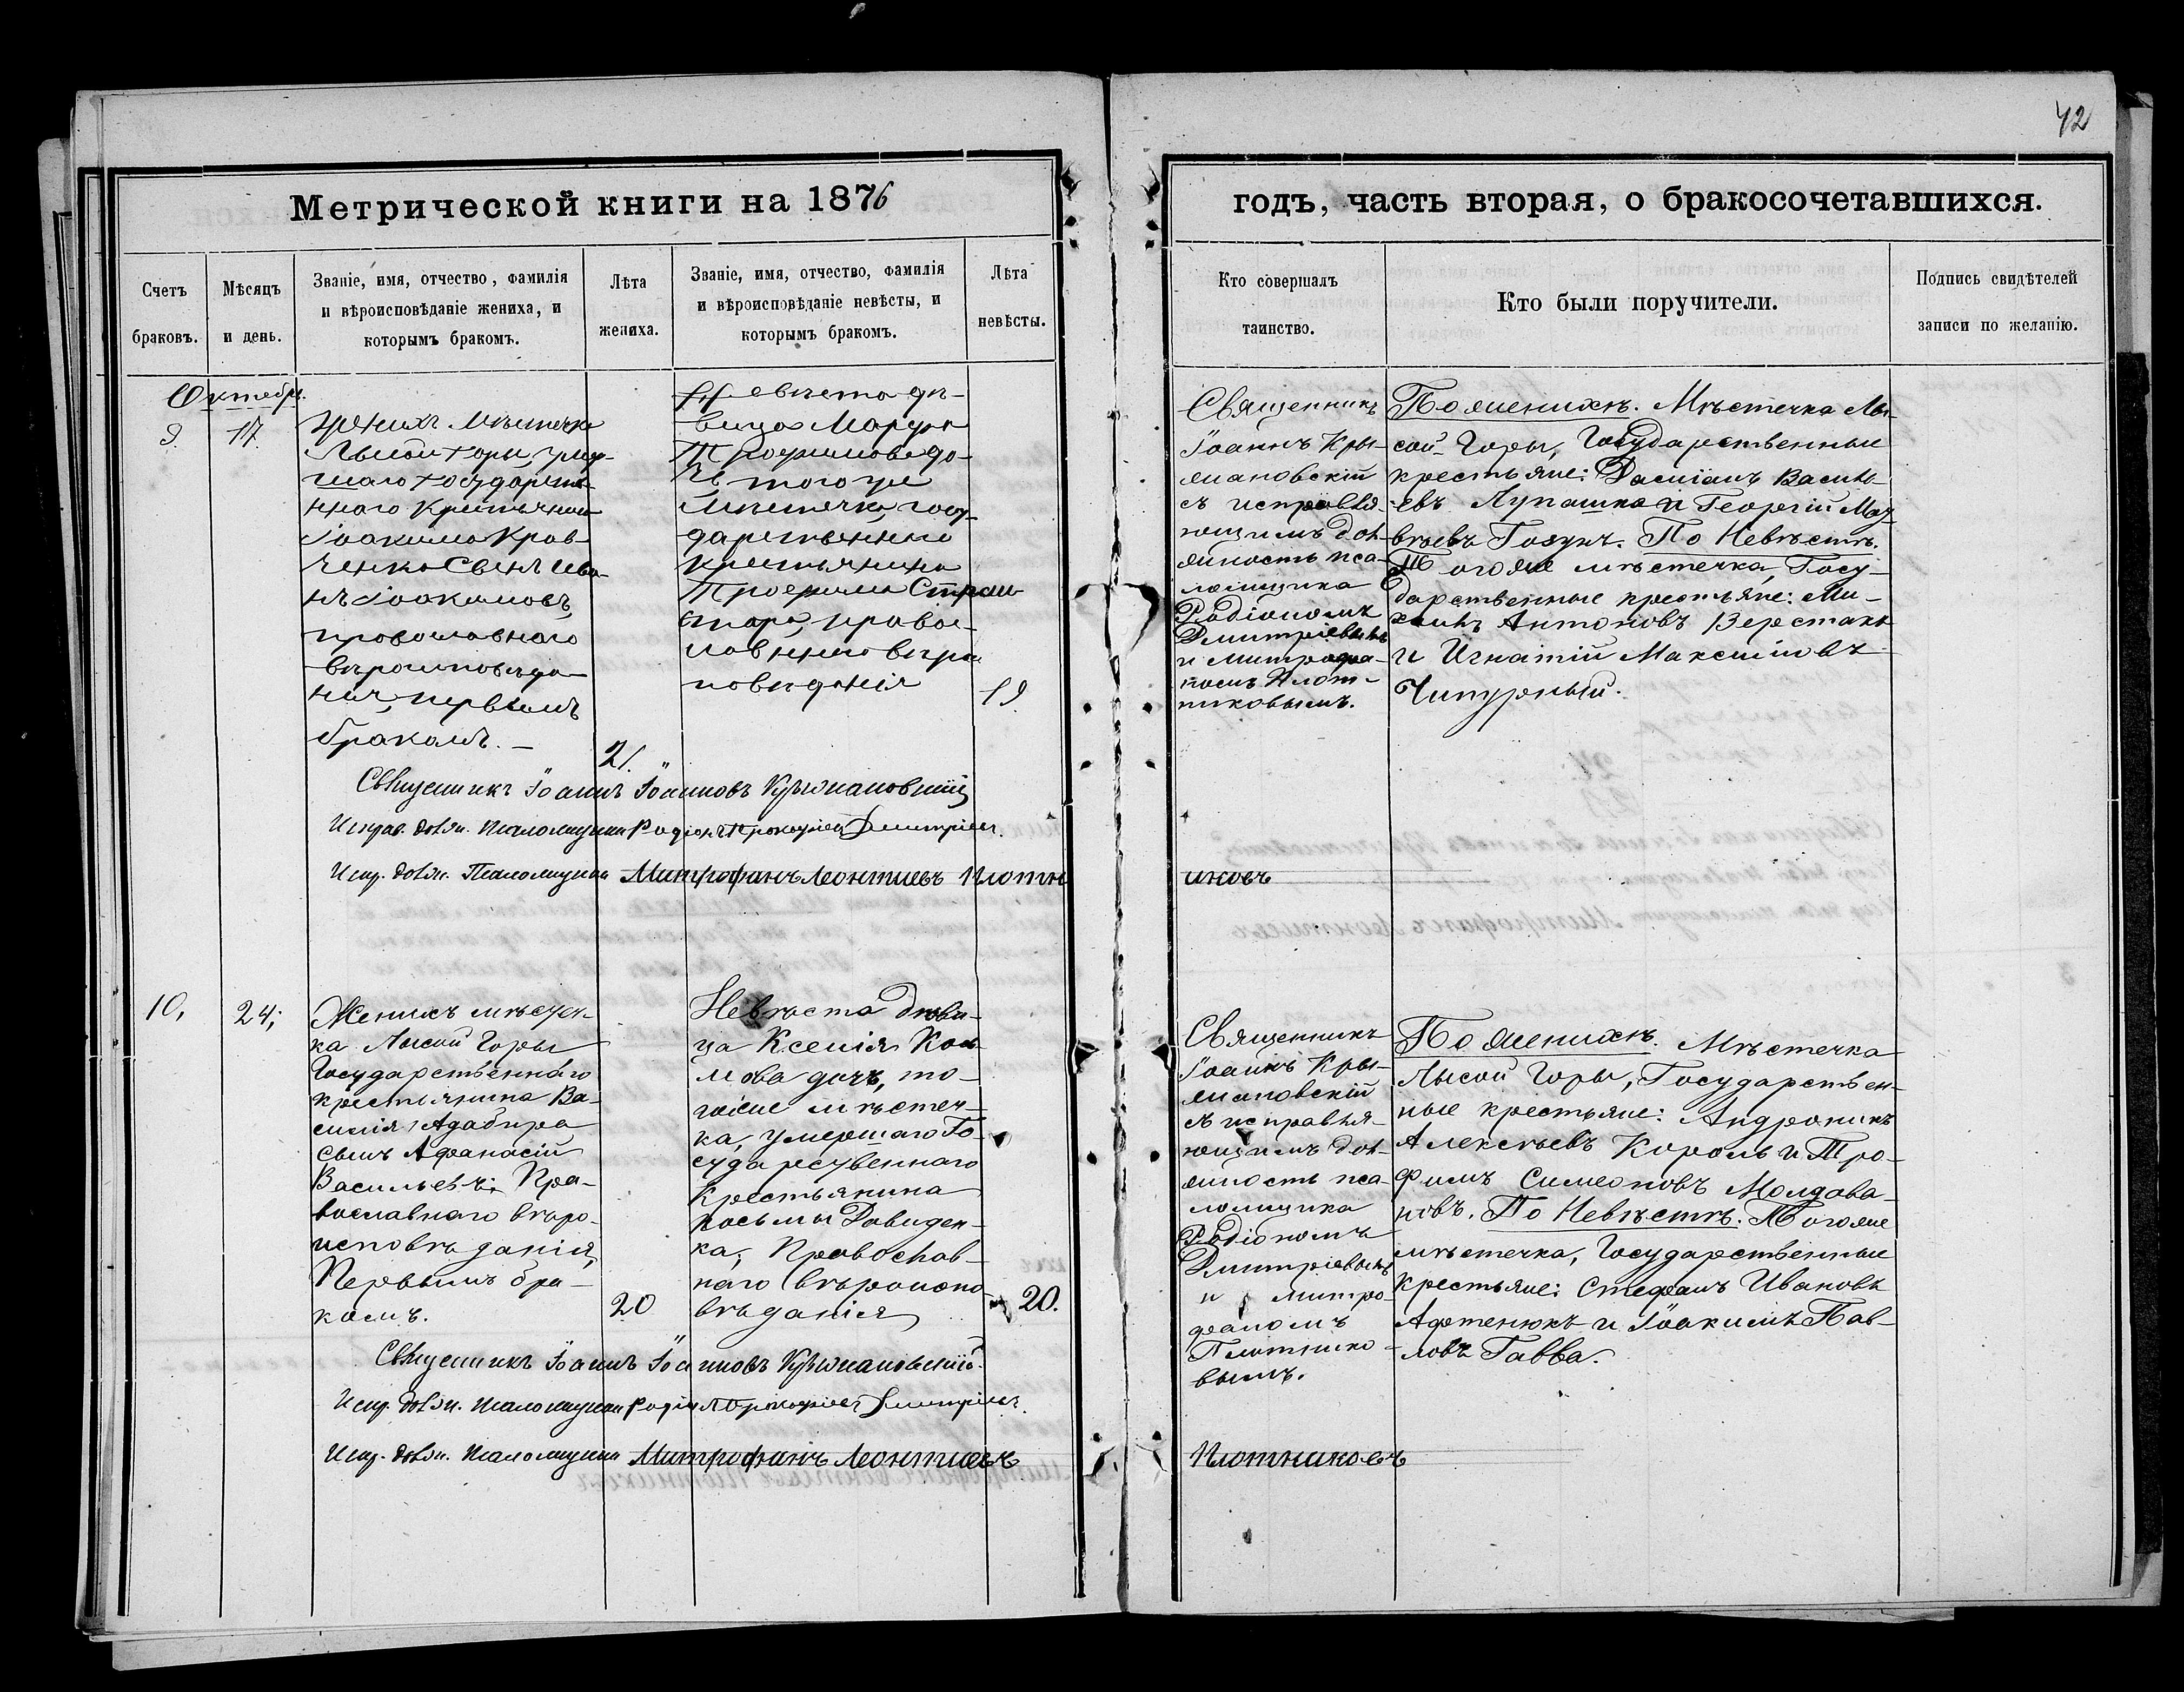 42
Метрической книги на 1876
годъ, часть вторая, о бракосочетавшихся.
Счетъ
браковъ.
Мѣсяцъ
и день.
Званіе, имя, отчество, фамилія
и вѣроисповѣданіе жениха, и
которымъ бракомъ.
Лѣта
жениха.
Званіе, имя, отчество, фамилія
и вѣроисповѣданіе невѣсты, и
которымъ бракомъ.
Лѣта
невѣсты.
Кто совершалъ
таинство.
Кто были поручители.
Подпись свидѣтелей
записи по желанію.
Октябрь.
9.
17.
Женихъ мѣстечка
Лысой Горы, умер-
шаго Государствен-
ннаго крестьянина
Іоакима Крав-
ченка Сынъ Ива-
нъ Іоакимовъ,
православнаго
вѣроисповѣда-
нія, первымъ
бракомъ. —
21.
Невѣста дѣ-
вица Марфа
Трофимова до-
чь того же
мѣстечка, госу-
дарственнаго
крестьянина
Трофима
православ-
повѣданія
19
Священникъ
Іоаннъ Кры-
жановскій
съ исправля-
ющимъ дол-
жность пса-
ломщика
Родіономъ
Дмитріевымъ
и Митрофа-
номъ Плот-
никовымъ.
По женихѣ. Мѣстечка Лы-
сой Горы, Государственные
крестьяне: Даміанъ Василь-
евъ Лупашко и Георгій Мат-
вѣевъ. По Невѣстѣ.
Того же мѣстечка, Госу-
дарственные крестьяне: Ми-
хаилъ Антоновъ Верстакъ
и Игнатій Максимовъ
Чипурный.
Священникъ Іоаннъ Іоанновъ Крыжановскій
Исправ. должн. Псаломщика Родіонъ Прокофіевъ Дмитріевъ.
Испр. должн. Псаломщика Митрофанъ Леонтиевъ Плотн
иковъ
10,
24;
Женихъ мѣстеч-
ка Лысой Горы
Государственнаго
крестьянина Ва-
силія Адабира
сынъ Афанасій
Васильевъ; Пра-
вославнаго вѣро-
исповѣданія,
Первымъ бра-
комъ.
20
Невѣста Дѣви-
ца Ксенія Коз-
мова дочь, то-
гоже мѣстеч-
ка, умершаго Го-
сударсувеннаго
Крестьянина
Косьмы Давиден-
ка, Православ-
наго вѣроиспо-
вѣданія
20.
Священникъ
Іоаннъ Кры-
жановскій
съ исправля-
ющимъ дол-
жность пса-
ломщика
Родіономъ
Дмитріевымъ
и Митро-
фаномъ
Плотнико-
вымъ.
По женихѣ. Мѣстечка
Лысой Горы, Государствен-
ные крестьяне: Андроникъ
Алексѣевъ Король и Тро-
фимъ Симеоновъ Молдова-
новъ. По Невѣстѣ. Тогоже
мѣстечка, Государственные
крестьяне: Стефанъ Ивановъ
Афтенюкъ и Іоакимъ Пав-
ловъ Гавва.
Священникъ Іоаннъ Іоанновъ Крыжановскій.
Испр. должн. Псаломщика Родіонъ Прокофіевъ Дмитріевъ.
Испр. должн. Псаломщика Митрофанъ Леонтиевъ
Плотниковъ